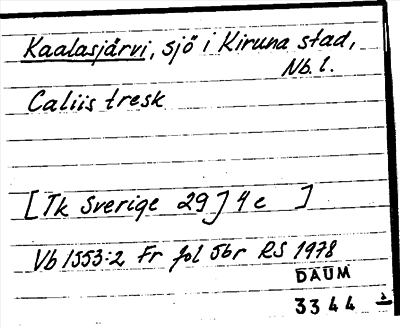 Kaalasjärvi, sjö i Kiruna stad,
Nb. l.
Caliis tresk
[Tk Sverige 29J 4e ]
Vb 1553:2 Fr fol 56r RS 1978
DAUM
3344